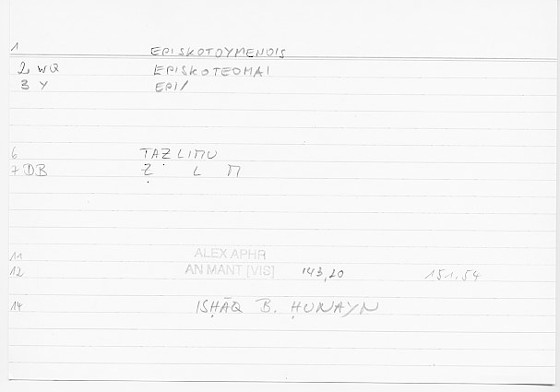 1 EPISKOTOYMENOIS
2 WQ EPISKOTEOMAI
3 Y EPI/
6 TAẒLIMU
7 DB Ẓ L M
11 ALEX APHR
12 AN MANT [VIS] 143,20 151.54
14 ISḤĀQ B. ḤUNAYN